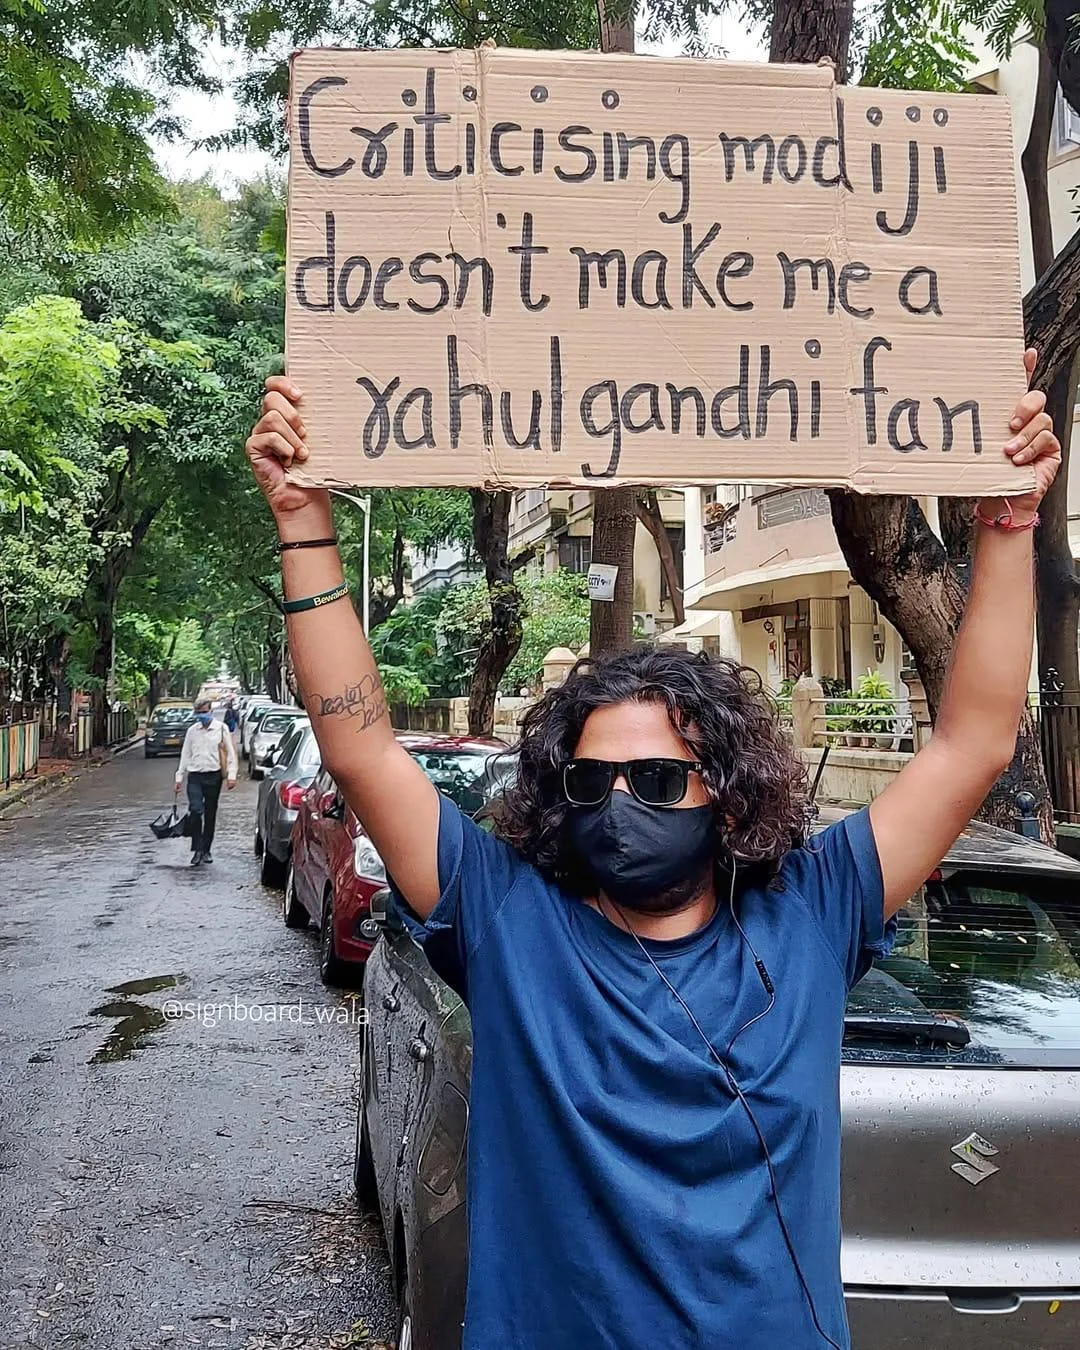 Criticising modiji
doesn't make me a
rahul gandhi fan
CCTV
Bewakoof
@signboard_wala